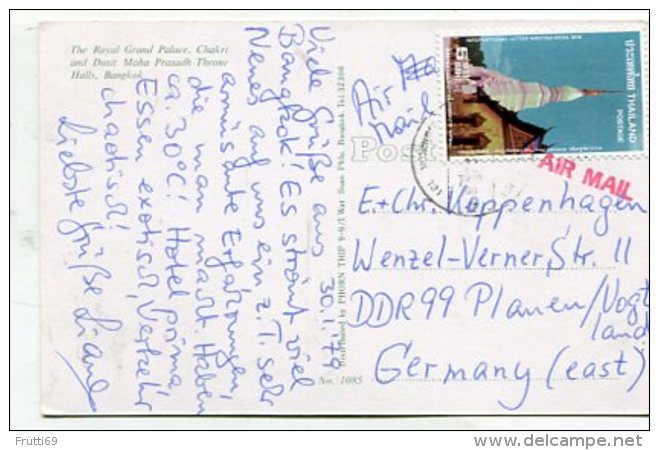 The Royal Grand Palace, Chakri
and Dusit Maha Prasadh Throne
Halls, Bangkok.
Viele Grüße aus 30.1.79
Bangkok! Es strömt viel
Neues auf uns ein z.T. sehr
amüsante Erfahrungen,
die man macht. Haben
ca. 30°C! Hotel prima,
Essen exotisch, Verkehr
chaotisch!
Liebste Grüße
Distributed by PHORN THIP 9-9/1 Wat Suan Phlu, Bangkok. Tel.
No. 1085
Post
INTERNATIONAL LETTER WRITING WEEK 1978
5
ประเทศไทย THAILAND
POSTAGE
AIR MAIL
E.+Chr. Koppenhagen
Wenzel-Verner, Str. 11
DDR 99 Plauen/Vogt
land
Germany (east)
Frutti69
www.delcampe.net